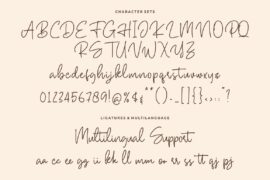 CHARACTER SETS
ABCDEFGHIJKLMNOPQ
RSTUVWXYZ
abcdefghijklmnopqrstuvwxyz
0123456789!@#$%
LIGATURES & MULTILANGUAGE
Multilingual Support